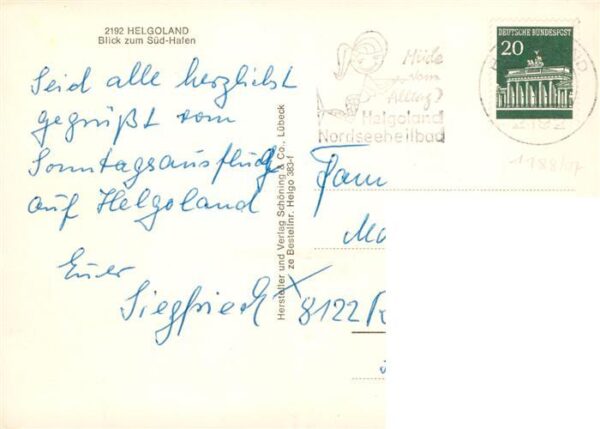 2192 HELGOLAND
Blick zum Süd-Hafen
Seid alle herzlichst
gegrüßt vom
Sonntagsausflug
auf Helgoland
Euer
Siegfried
Hersteller und Verlag Schöning & Co., Lübeck
ze Bestellnr. Helgo 383-f
Müde
vom
Alltag?
Helgoland
Nordseeheilbad
DEUTSCHE BUNDESPOST
20
2192
Fam
8122